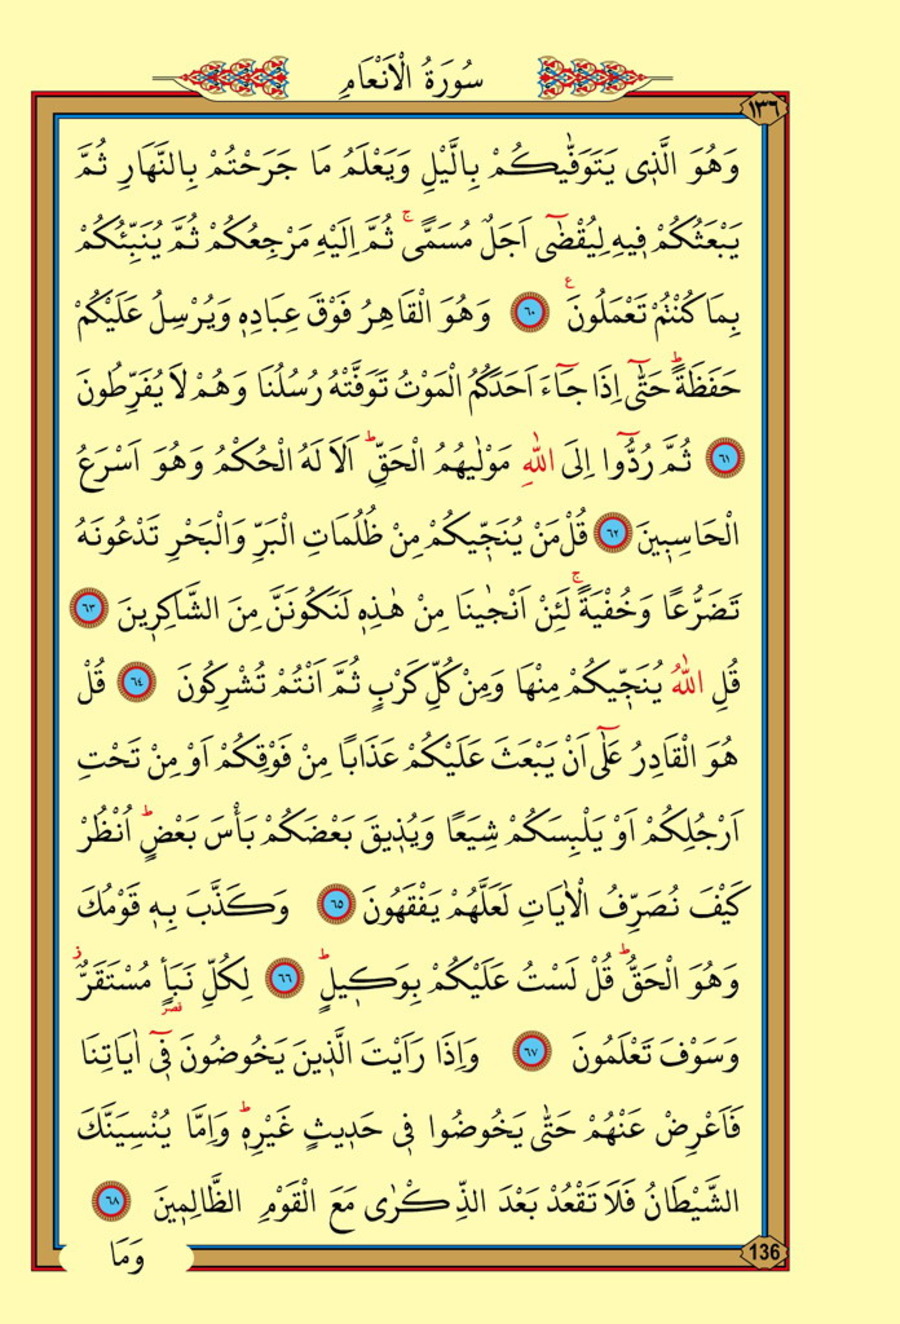 سُورَةُ الْاَنْعَامِ
١٣٦
وَهُوَ الَّذ۪ي يَتَوَفّٰيكُمْ بِالَّيْلِ وَيَعْلَمُ مَا جَرَحْتُمْ بِالنَّهَارِ ثُمَّ
يَبْعَثُكُمْ ف۪يهِ لِيُقْضٰٓى اَجَلٌ مُسَمًّىۚ ثُمَّ اِلَيْهِ مَرْجِعُكُمْ ثُمَّ يُنَبِّئُكُمْ
بِمَا كُنْتُمْ تَعْمَلُونَ ع ٦٠ وَهُوَ الْقَاهِرُ فَوْقَ عِبَادِه۪ وَيُرْسِلُ عَلَيْكُمْ
حَفَظَةًۜ حَتّٰٓى اِذَا جَٓاءَ اَحَدَكُمُ الْمَوْتُ تَوَفَّتْهُ رُسُلُنَا وَهُمْ لَا يُفَرِّطُونَ
٦١ ثُمَّ رُدُّٓوا اِلَى اللّٰهِ مَوْلٰيهُمُ الْحَقِّۜ اَلَا لَهُ الْحُكْمُ وَهُوَ اَسْرَعُ
الْحَاسِب۪ينَ ٦٢ قُلْ مَنْ يُنَجّ۪يكُمْ مِنْ ظُلُمَاتِ الْبَرِّ وَالْبَحْرِ تَدْعُونَهُ
تَضَرُّعًا وَخُفْيَةًۚ لَئِنْ اَنْجٰينَا مِنْ هٰذِه۪ لَنَكُونَنَّ مِنَ الشَّاكِر۪ينَ ٦٣
قُلِ اللّٰهُ يُنَجّ۪يكُمْ مِنْهَا وَمِنْ كُلِّ كَرْبٍ ثُمَّ اَنْتُمْ تُشْرِكُونَ ٦٤ قُلْ
هُوَ الْقَادِرُ عَلٰٓى اَنْ يَبْعَثَ عَلَيْكُمْ عَذَابًا مِنْ فَوْقِكُمْ اَوْ مِنْ تَحْتِ
اَرْجُلِكُمْ اَوْ يَلْبِسَكُمْ شِيَعًا وَيُذ۪يقَ بَعْضَكُمْ بَأْسَ بَعْضٍۜ اُنْظُرْ
كَيْفَ نُصَرِّفُ الْاٰيَاتِ لَعَلَّهُمْ يَفْقَهُونَ ٦٥ وَكَذَّبَ بِه۪ قَوْمُكَ
وَهُوَ الْحَقُّۜ قُلْ لَسْتُ عَلَيْكُمْ بِوَك۪يلٍۜ ٦٦ لِكُلِّ نَبَأٍ مُسْتَقَرٌّ ز
وَسَوْفَ تَعْلَمُونَ ٦٧ وَاِذَا رَاَيْتَ الَّذ۪ينَ يَخُوضُونَ ف۪ٓي اٰيَاتِنَا
فَاَعْرِضْ عَنْهُمْ حَتّٰى يَخُوضُوا ف۪ي حَد۪يثٍ غَيْرِه۪ۜ وَاِمَّا يُنْسِيَنَّكَ
الشَّيْطَانُ فَلَا تَقْعُدْ بَعْدَ الذِّكْرٰى مَعَ الْقَوْمِ الظَّالِم۪ينَ ٦٨
وَمَا
136